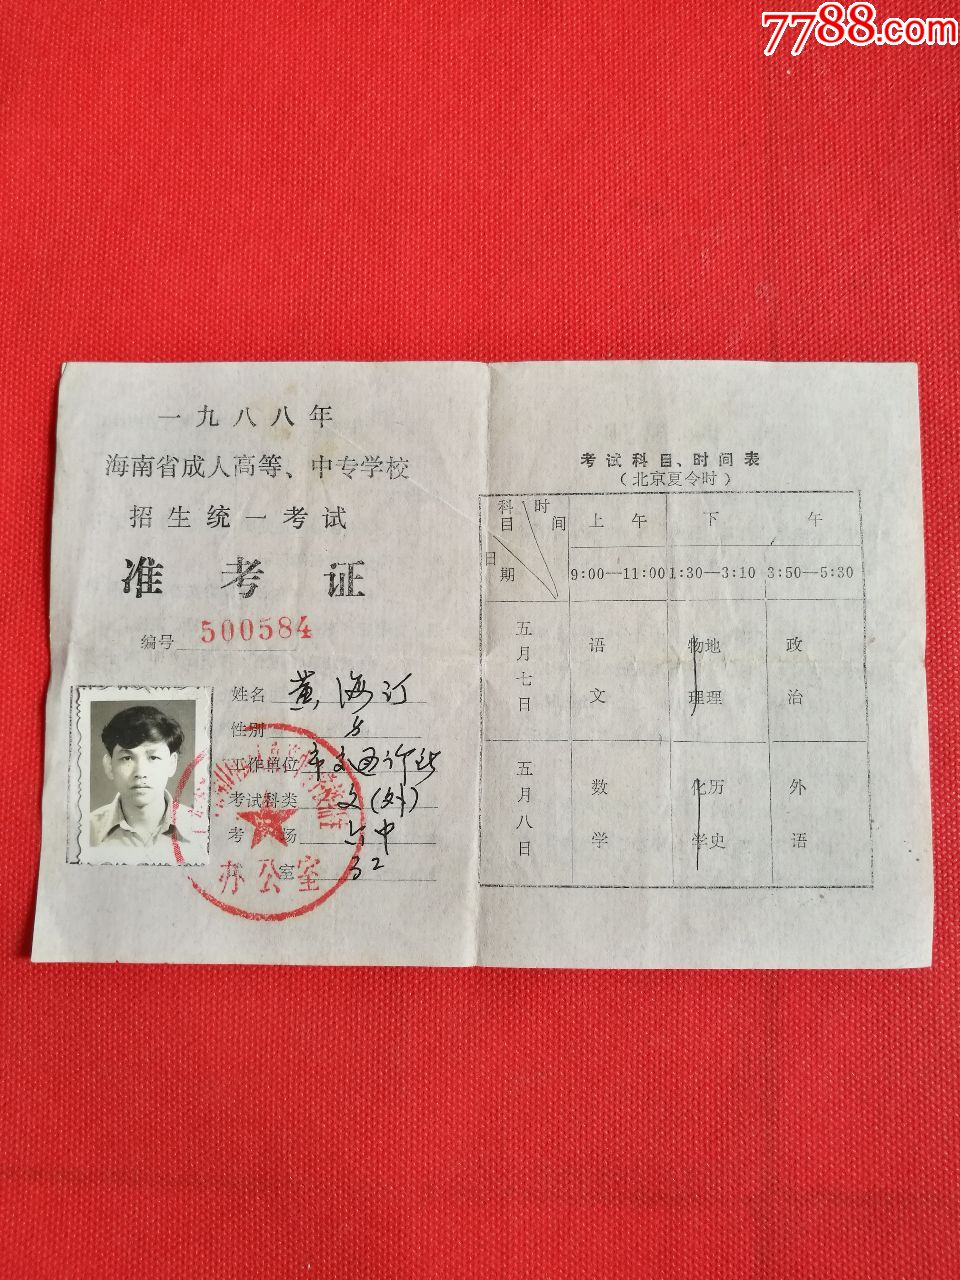 7788.com
一九八八年
海南省成人高等、中专学校
招生统一考试
准考证
编号 500584
姓名 黄海汀
性别
工作单位 市交通
考试科类 文(外)
考 场 中
室 32
办公室
考试科目、时间表
(北京夏令时)
科目 时间 日期
上午 下午
9:00—11:00 1:30—3:10 3:50—5:30
五月七日 语文 物理 地理 政治
五月八日 数学 化学 历史 外语